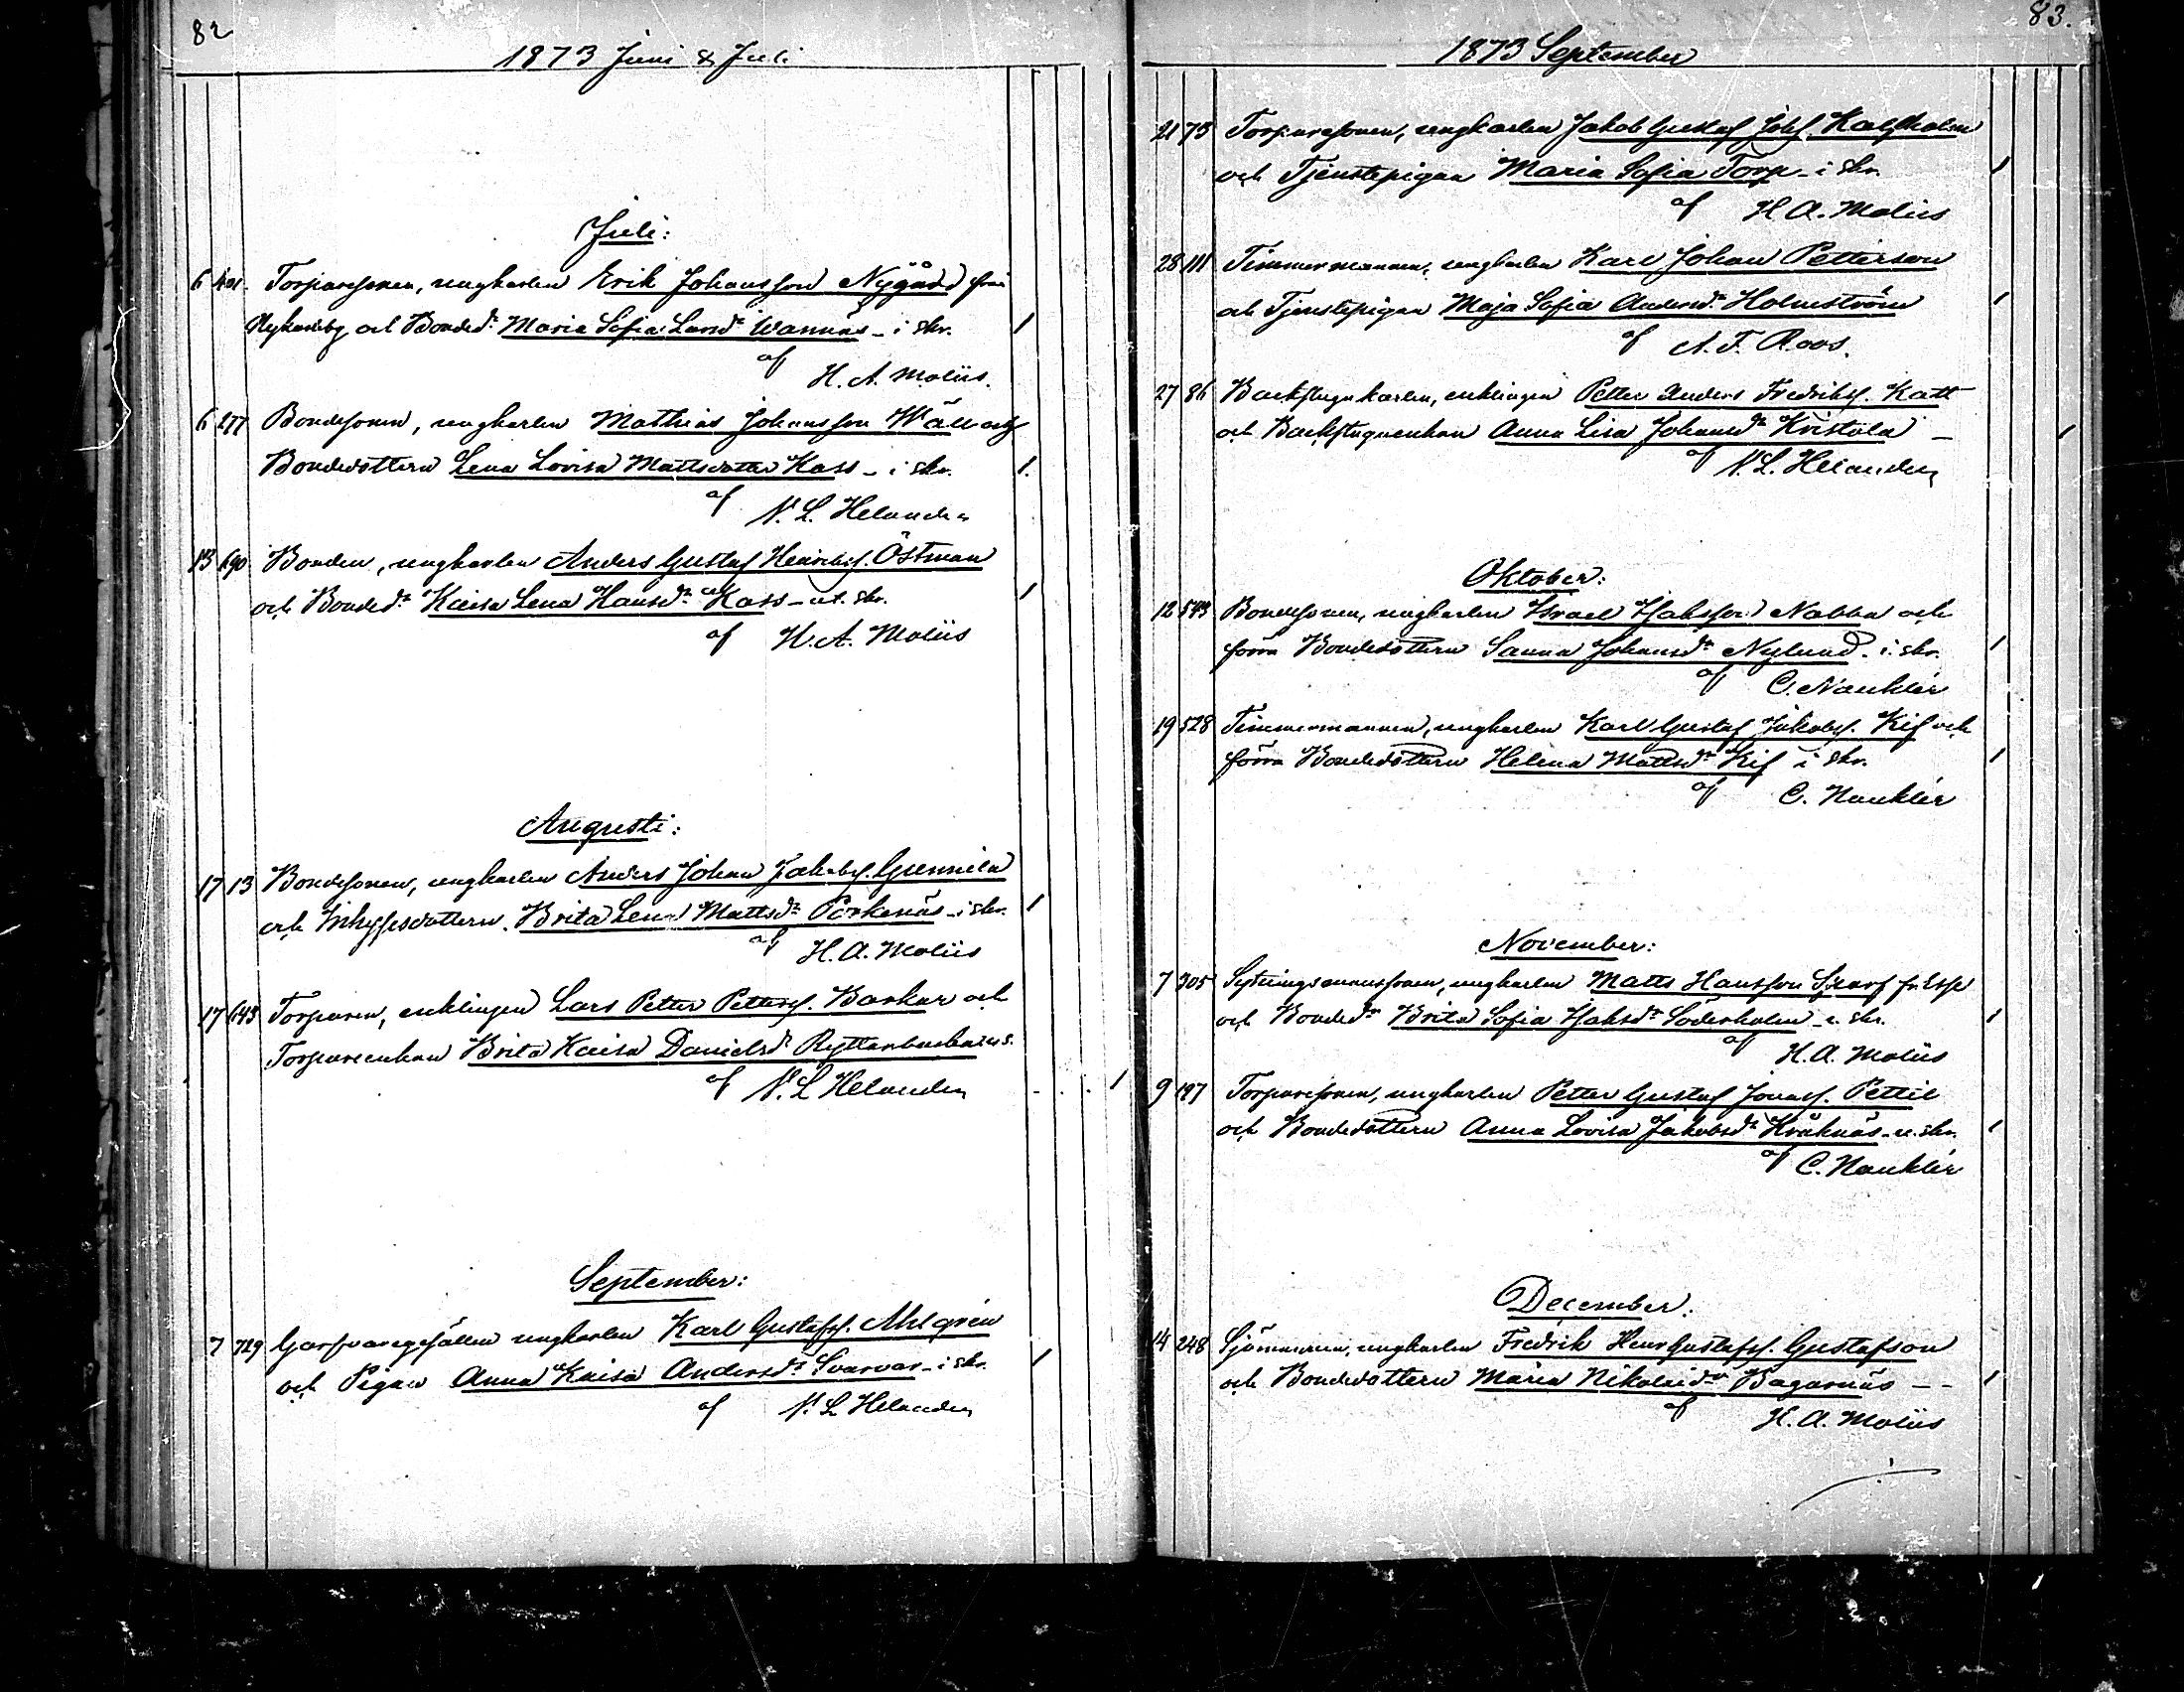 82
1873 Juni & Juli
Juli:
6 401. Torparesonen, ungkarlen Erik Johansson Nygård från
Nykarleby och Bonded:r Maria Sofia Larsd:r Wannäs - i skr.
af
H. A. Moliis.
6 277 Bondesonen, ungkarlen Mathias Johansson Wäll och
Bondedottern Lena Lovisa Mattsdotter Kass - i skr.
af
N. L. Helander
13 690 Bonden, ungkarlen Anders Gustaf Henriksf. Östman
och Bonded:r Kaisa Lena Hansd:r Kass - ut. skr.
af H. A. Moliis
Augusti:
17 13 Bondesonen, ungkarlen Anders Johan Jakobsf. Gunnila
och Inhysesdottern Brita Lena Mattsd:r Porkenäs - i skr.
af
H. A. Moliis
17 643 Torparen, enklingen Lars Petter Pettersf. Backar och
Torpareenkan Brita Kaisa Danielsd:r Ryttarbacka
af N. L. Helander
September:
7 729 Garfvaregesällen ungkarlen Karl Gustafsf. Ahlgren
och Pigan Anna Kaisa Andersd:r Svarvar - i skr.
af N. L. Helander
83.
1873 September
21 73 Torparesonen, ungkarlen Jakob Gustaf Johsf. Kalfholm
och Tjenstepigan Maria Sofia Torp - i skr.
af H. A. Moliis
28 111 Timmermannen, ungkarlen Karl Johan Petterson
och Tjenstepigan Maja Sofia Andersd:r Holmström
af A. F. Roos.
27 86 Backstugukarlen, enklingen Petter Anders Fredriksf. Katt
och Backstuguenkan Anna Lisa Johansd:r Kristola -
af N. L. Helander
Oktober:
12 543 Bondesonen, ungkarlen Israel Isaksson Nabba och
förra Bondedottern Sanna Johansd:r Nylund - i skr.
af C. Nauklér
19 528 Timmermannen, ungkarlen Karl Gustaf Jakobsf. Kif och
förra Bondedottern Helena Mattsd:r Kif i skr.
af C. Nauklér
November:
7 305 Sytningsmanssonen, ungkarlen Matts Hansson Skarf fr. Esse
och Bonded:r Brita Sofia Isaksd:r Söderholm - u. skr.
af
H. A. Moliis
9 197 Torparesonen, ungkarlen Petter Gustaf Jonasf. Pettil
och Bondedottern Anna Lovisa Jakobsd:r Kråknäs - u. skr.
af C. Nauklér
December.
14 248 Sjömannen, ungkarlen Fredrik Henr Gustafsf. Gustafson
och Bondedottern Maria Nikolaid:r Bagarnäs - -
af
H. A. Moliis